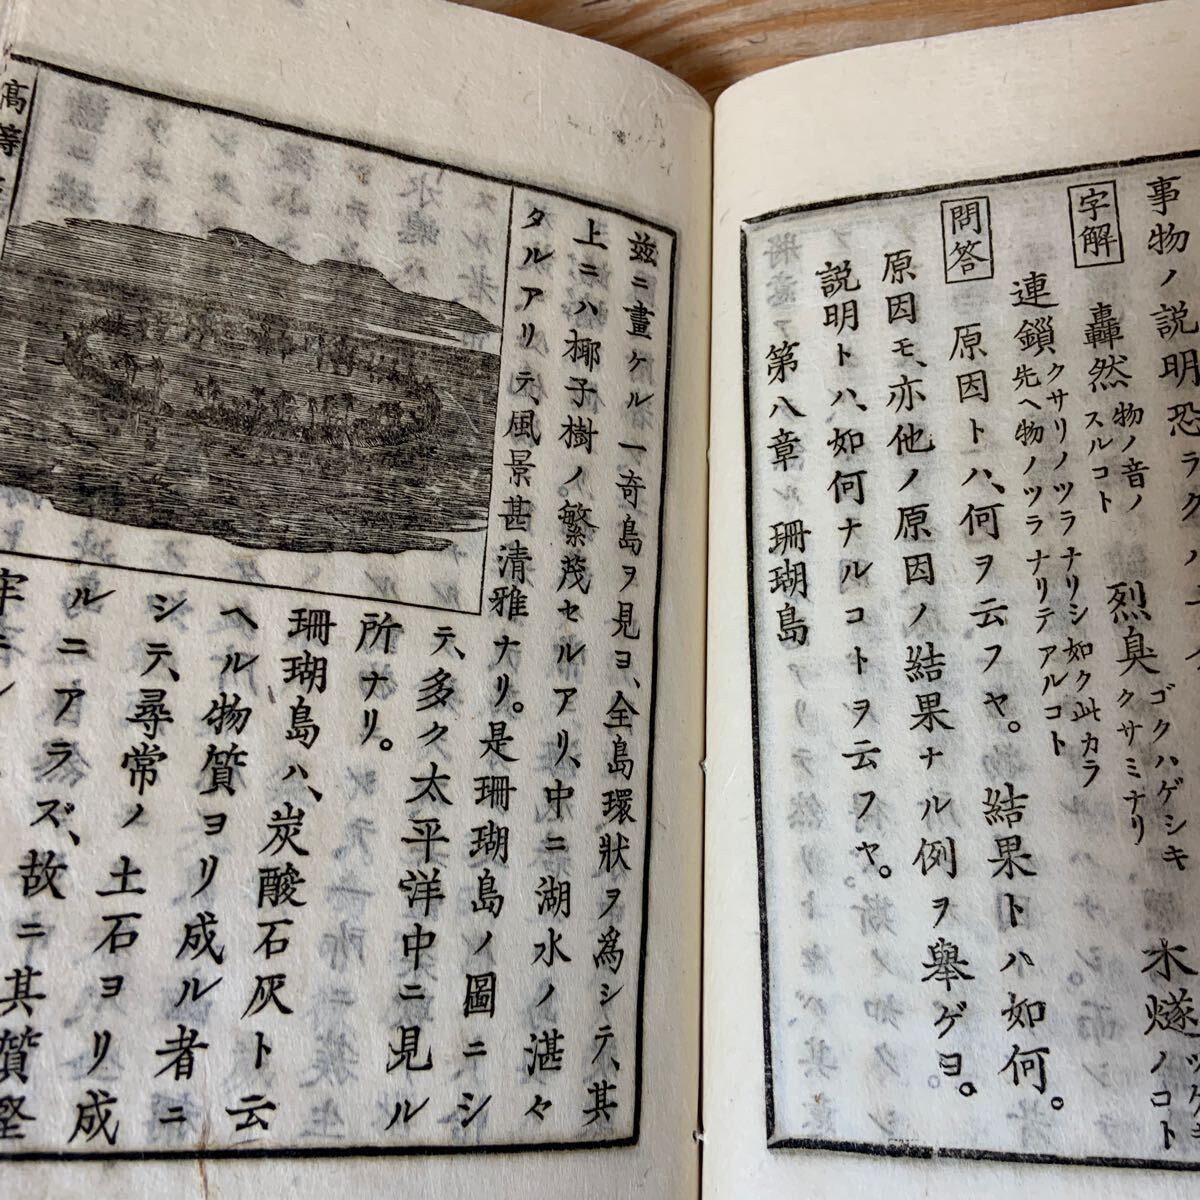 事物ノ説明恐ラク
木燧
ノコト
字解
轟然
物ノ音ノ
スルコト
烈臭
ゴクハゲシキ
クサミナリ
連鎖
クサリノツラナリシ如ク此カラ
先ヘ物ノツラナリテアルコト
問答
原因トハ、何ヲ云フヤ。 結果トハ如何。
原因モ、亦他ノ原因ノ結果ナル例ヲ擧ゲヨ。
説明トハ、如何ナルコトヲ云フヤ。
第八章 珊瑚島
茲ニ畫ケル一奇島ヲ見ヨ、全島環狀ヲ爲シテ、其
上ニハ椰子樹ノ繁茂セルアリ、中ニ湖水ノ湛々
タルアリテ、風景甚清雅ナリ。是珊瑚島ノ圖ニシ
テ、多ク太平洋中ニ見ル
所ナリ。
珊瑚島ハ、炭酸石灰ト云
ヘル物質ヨリ成ル者ニ
シテ、尋常ノ土石ヨリ成
ルニアラズ、故ニ其質堅
高等